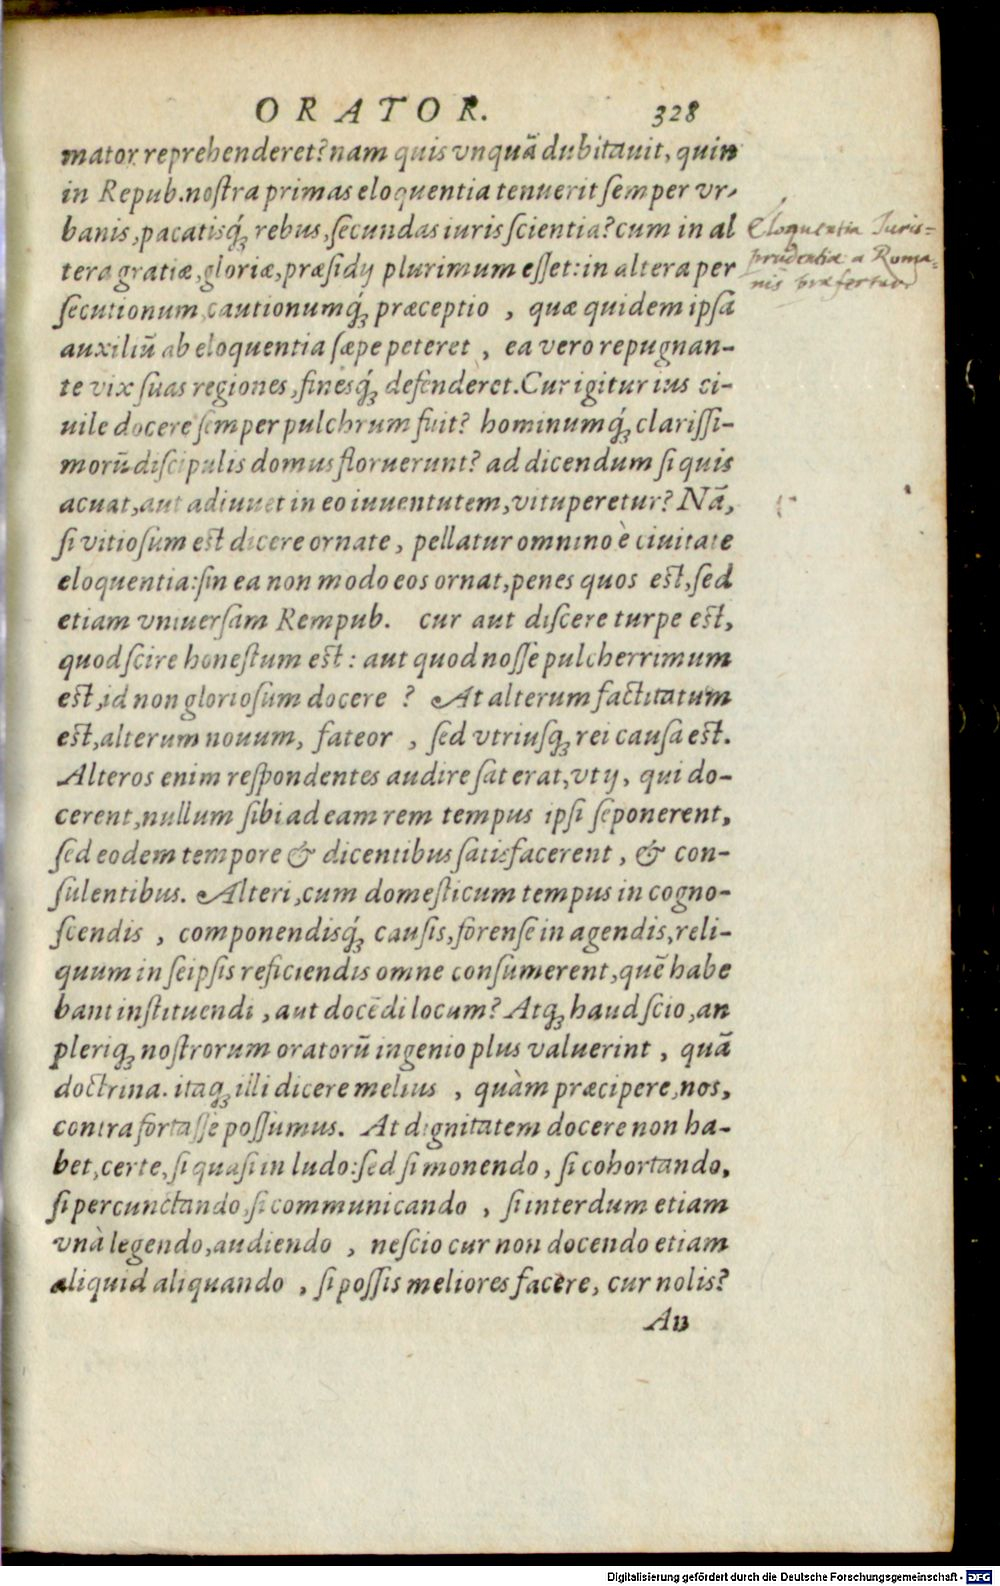 ORATOR. 328
mator reprehenderet? nam quis vnquã dubitauit, quin
in Repub. noſtra primas eloquentia tenuerit ſemper vr-
banis, pacatisq́ꝫ rebus, ſecundas iuris ſcientia? cum in al
tera gratiæ, gloriæ, præſidÿ plurimum eſſet: in altera per
ſecutionum, cautionumq́ꝫ præceptio , quæ quidem ipſa
auxiliũ ab eloquentia ſæpe peteret , ea vero repugnan-
te vix ſuas regiones, finesq́ꝫ defenderet. Cur igitur ius ci-
uile docere ſemper pulchrum fuit? hominumq́ꝫ clariſſi-
morũ diſcipulis domus floruerunt? ad dicendum ſi quis
acuat, aut adiuuet in eo iuuentutem, vituperetur? Nã,
ſi vitioſum eſt dicere ornate, pellatur omnino è ciuitate
eloquentia: ſin ea non modo eos ornat, penes quos eſt, ſed
etiam vniuerſam Rempub. cur aut diſcere turpe eſt,
quod ſcire honeſtum eſt: aut quod noſſe pulcherrimum
eſt, id non glorioſum docere ? At alterum factitatum
eſt, alterum nouum, fateor , ſed vtriusqꝫ rei cauſa eſt.
Alteros enim reſpondentes audire ſat erat, vtÿ, qui do-
cerent, nullum ſibi ad eam rem tempus ipſi ſeponerent,
ſed eodem tempore & dicentibus ſatisfacerent, & con-
ſulentibus. Alteri, cum domeſticum tempus in cogno-
ſcendis , componendisq́ꝫ cauſis, forenſe in agendis, reli-
quum in ſeipſis reficiendis omne conſumerent, quẽ habe
bant inſtituendi , aut docẽdi locum? Atqꝫ haud ſcio, an
pleriqꝫ noſtrorum oratorũ ingenio plus valuerint , quã
doctrina. itaqꝫ illi dicere melius , quàm præcipere, nos,
contra fortaſſe poſſumus. At dignitatem docere non ha-
bet, certe, ſi quaſi in ludo: ſed ſi monendo, ſi cohortando,
ſi percunctando, ſi communicando , ſi interdum etiam
vnà legendo, audiendo , neſcio cur non docendo etiam
aliquid aliquando , ſi poſſis meliores facere, cur nolis?
An
Eloquentia Juris=
prudentiæ a Roma-
nis præfertur
Digitalisierung gefördert durch die Deutsche Forschungsgemeinschaft - DFG